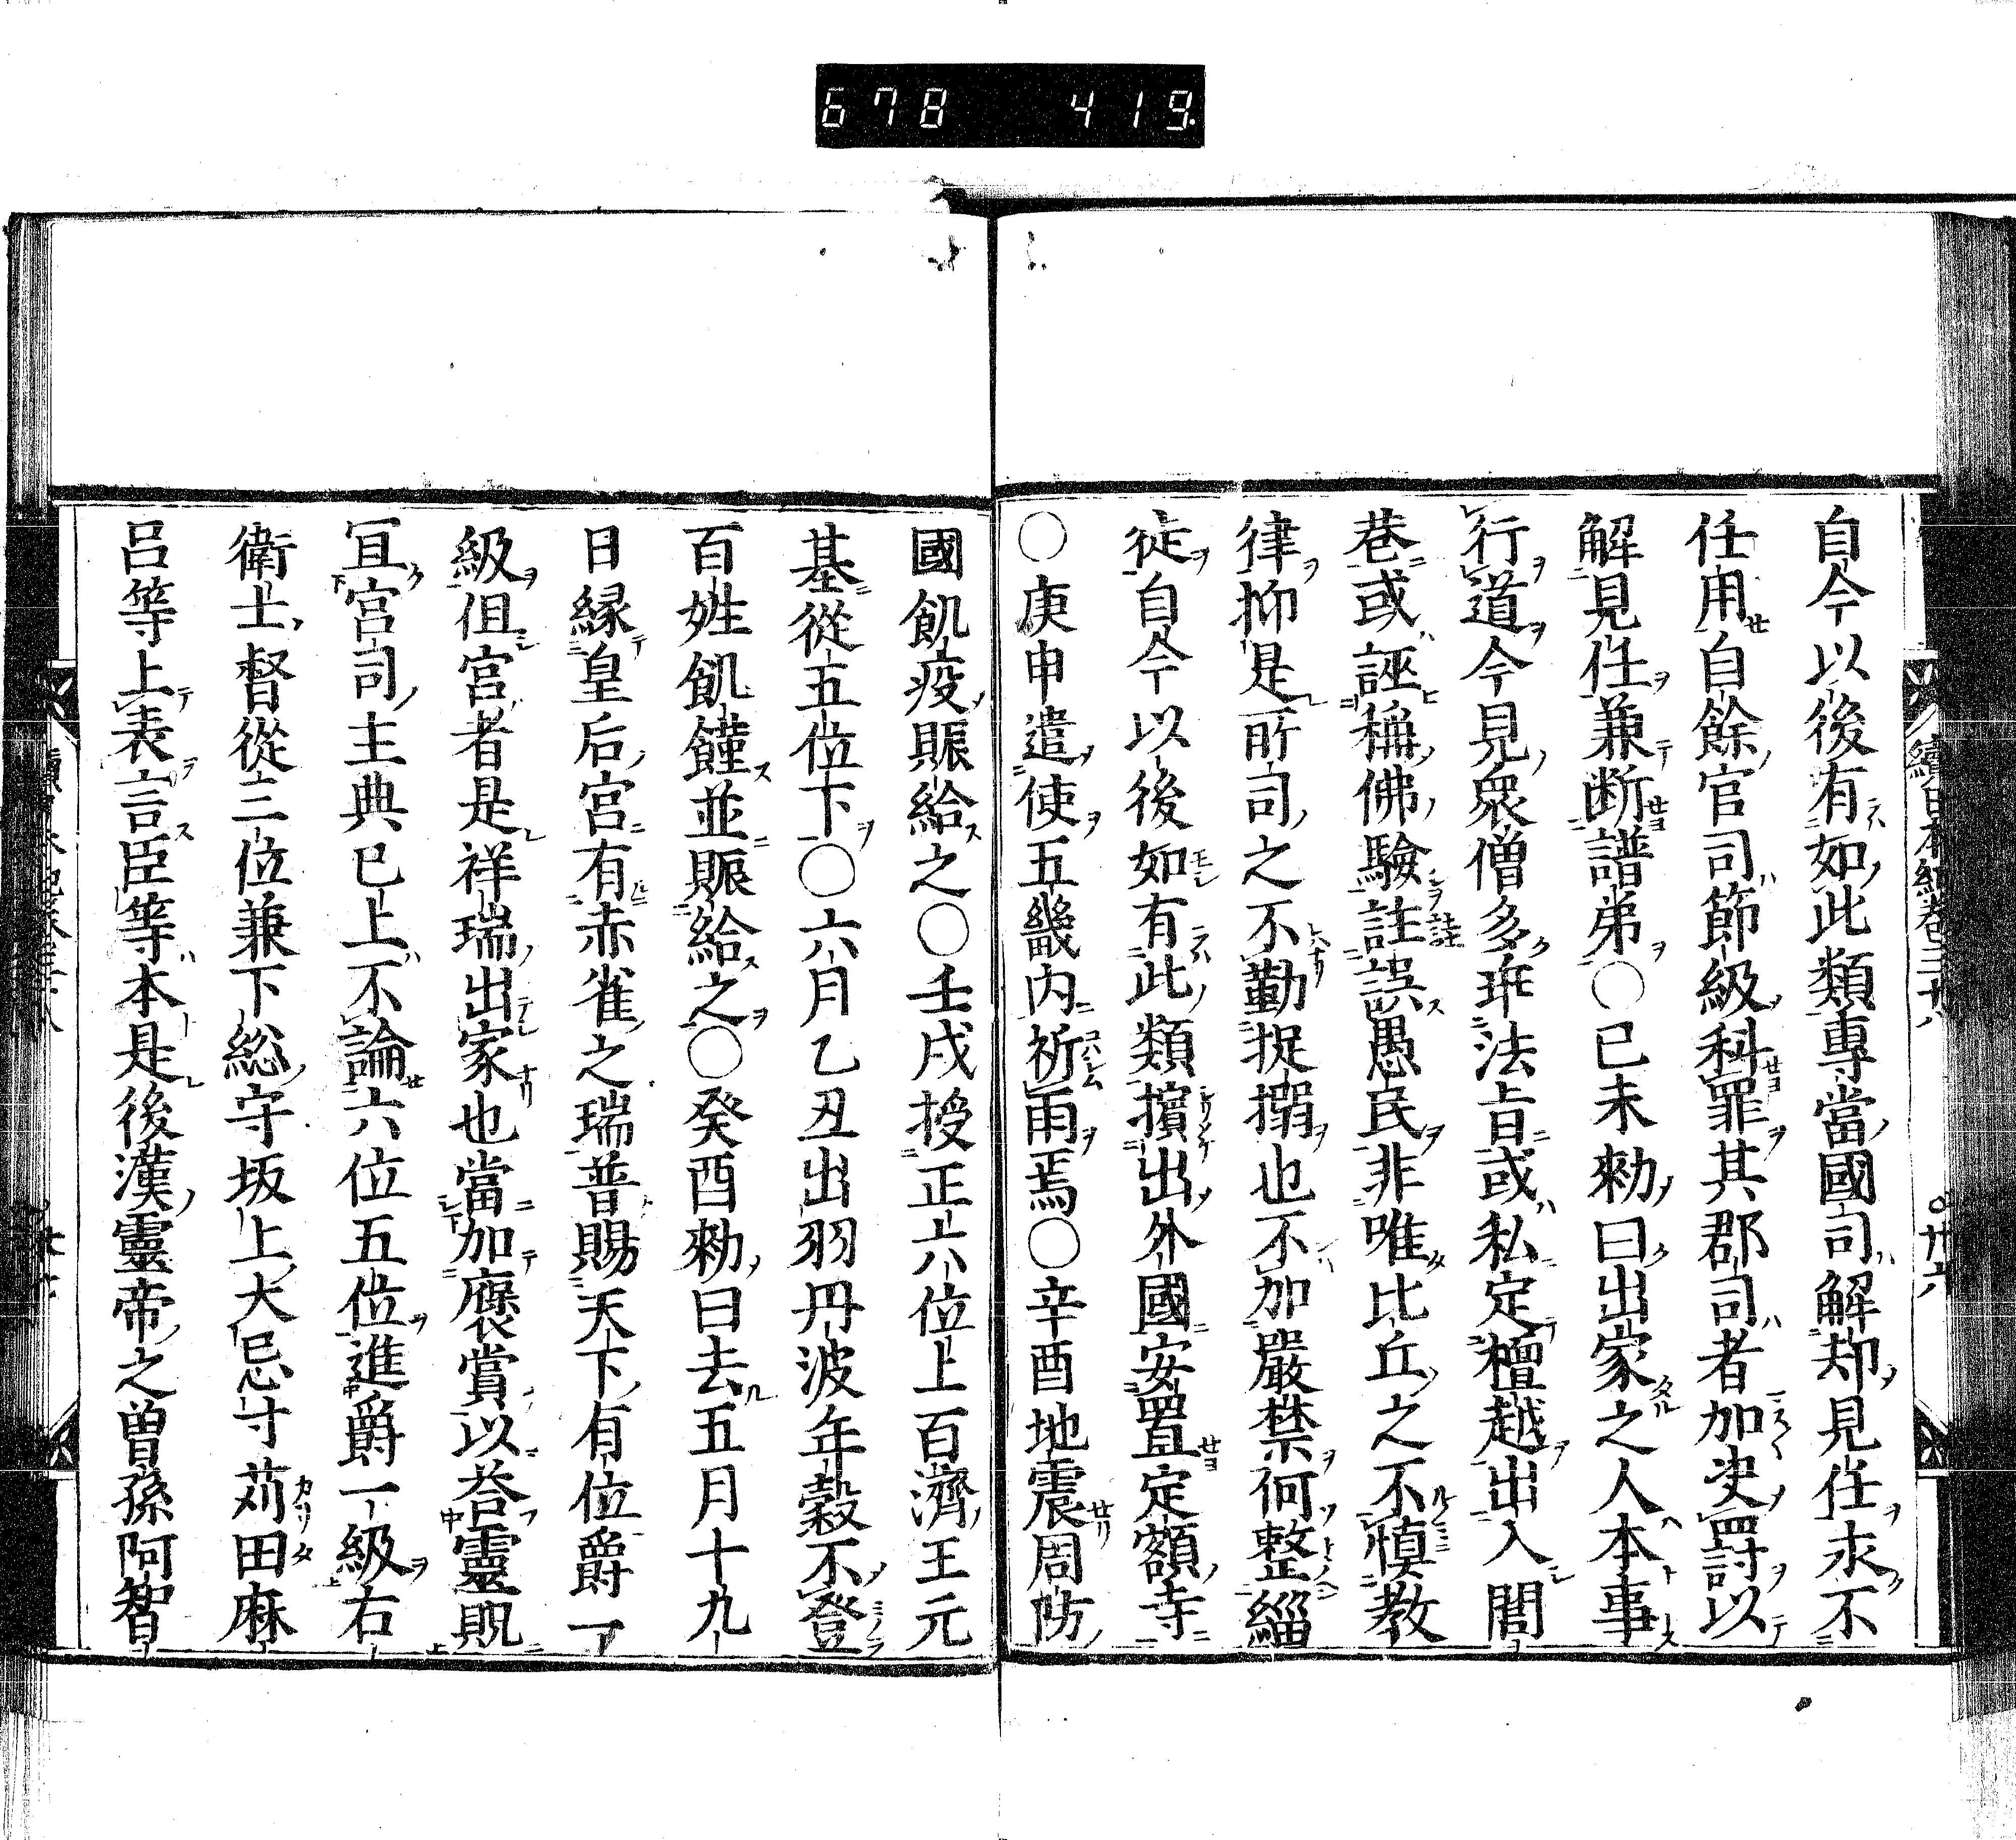 678 419.
續日本紀卷三十八
卅六
自今以後有如此類專當國司解却見任永不
任用自餘官司節級科罪其郡司者加决罸以
解見任兼断譜弟○己未勑曰出家之人本事
行道今見衆僧多乖法旨或私定檀越出入閭
巷或誣稱佛驗詿誤愚民非唯比丘之不慎教
律抑是所司之不勤捉搦也不加嚴禁何整緇
徒自今以後如有此類擯出外國安置定額寺
○庚申遣使五畿内祈雨焉○辛酉地震周防
國飢疫賑給之○壬戌授正六位上百濟王元
基從五位下○六月乙丑出羽丹波年穀不登
百姓飢饉並賑給之○癸酉勑曰去五月十九
日縁皇后宮有赤雀之瑞普賜天下有位爵一
級但宮者是祥瑞出家也當加褒賞以荅靈貺
冝宮司主典已上不論六位五位進爵一級右
衛士督從三位兼下総守坂上大忌寸苅田麻
呂等上表言臣等本是後漢靈帝之曽孫阿智